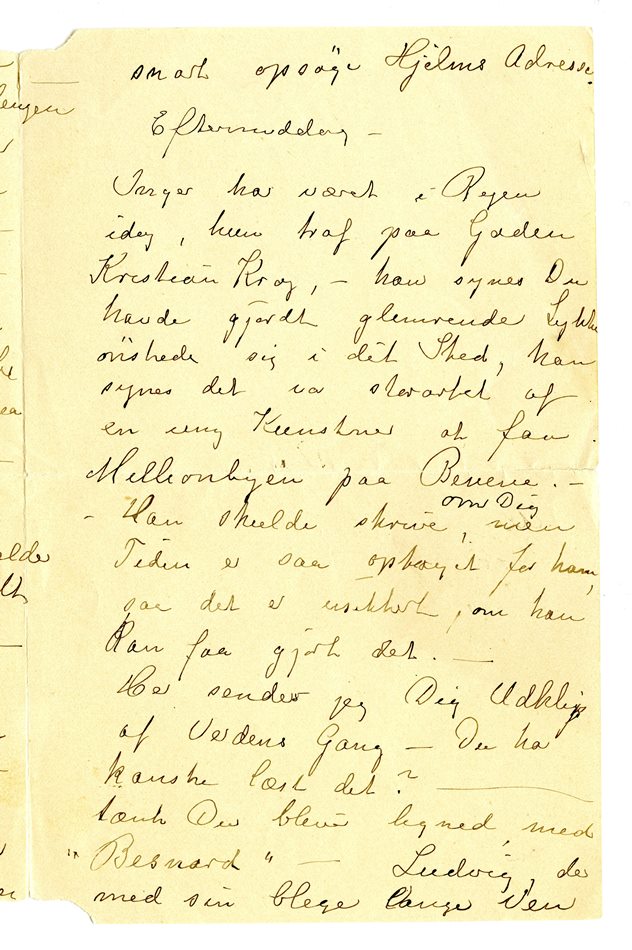 snart opsøge Hjelms Adresse.
Eftermiddag –
Inger har været i Byen
idag, hun traf paa Gaden
Kristian Krog, – han synes Du
havde gjordt glimrende Lykke
ønskede sig i dit Sted, han
synes det va storartet af
en ung Kunstner at faa
Millionbyen paa Benene. –
– Han skulde skrive om Dig, men
Tiden er saa optaget for ham,
saa det er usikkert, om han
kan faa gjort det. –
Her sender jeg Dig Udklip
af Verdens Gang – Du ha
kanske læst det? –
tænk Du blev ligned med
"Besnard" – Ludvig, de
med sin blege lange Ven
lengen
alde